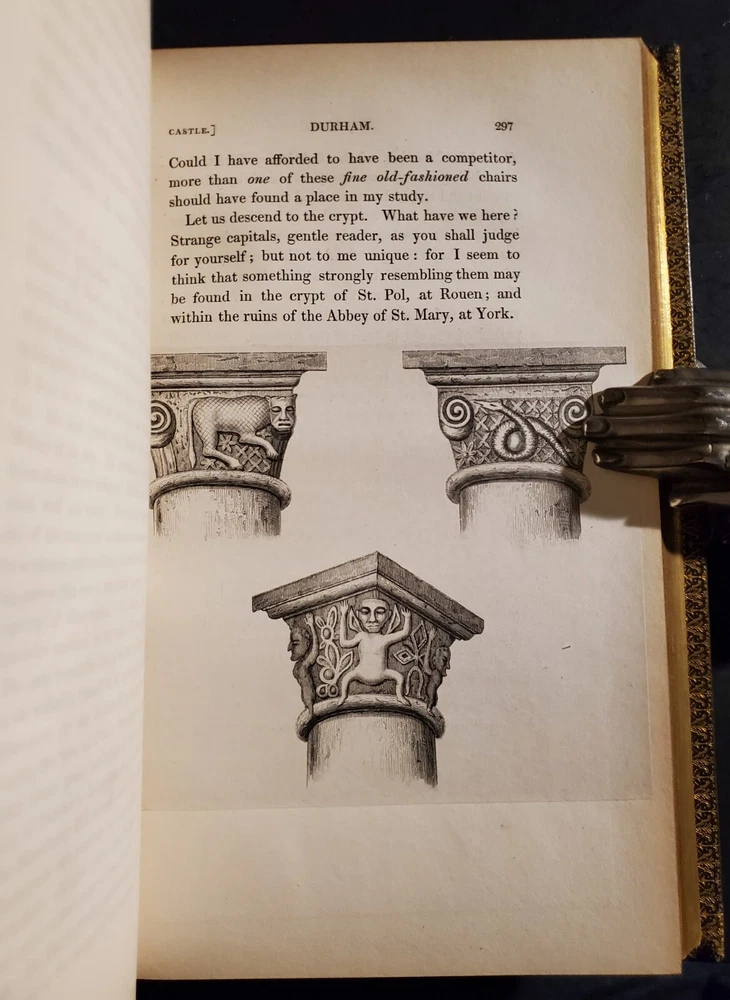 CASTLE.] DURHAM. 297
Could I have afforded to have been a competitor,
more than one of these fine old-fashioned chairs
should have found a place in my study.
Let us descend to the crypt. What have we here?
Strange capitals, gentle reader, as you shall judge
for yourself; but not to me unique: for I seem to
think that something strongly resembling them may
be found in the crypt of St. Pol, at Rouen; and
within the ruins of the Abbey of St. Mary, at York.